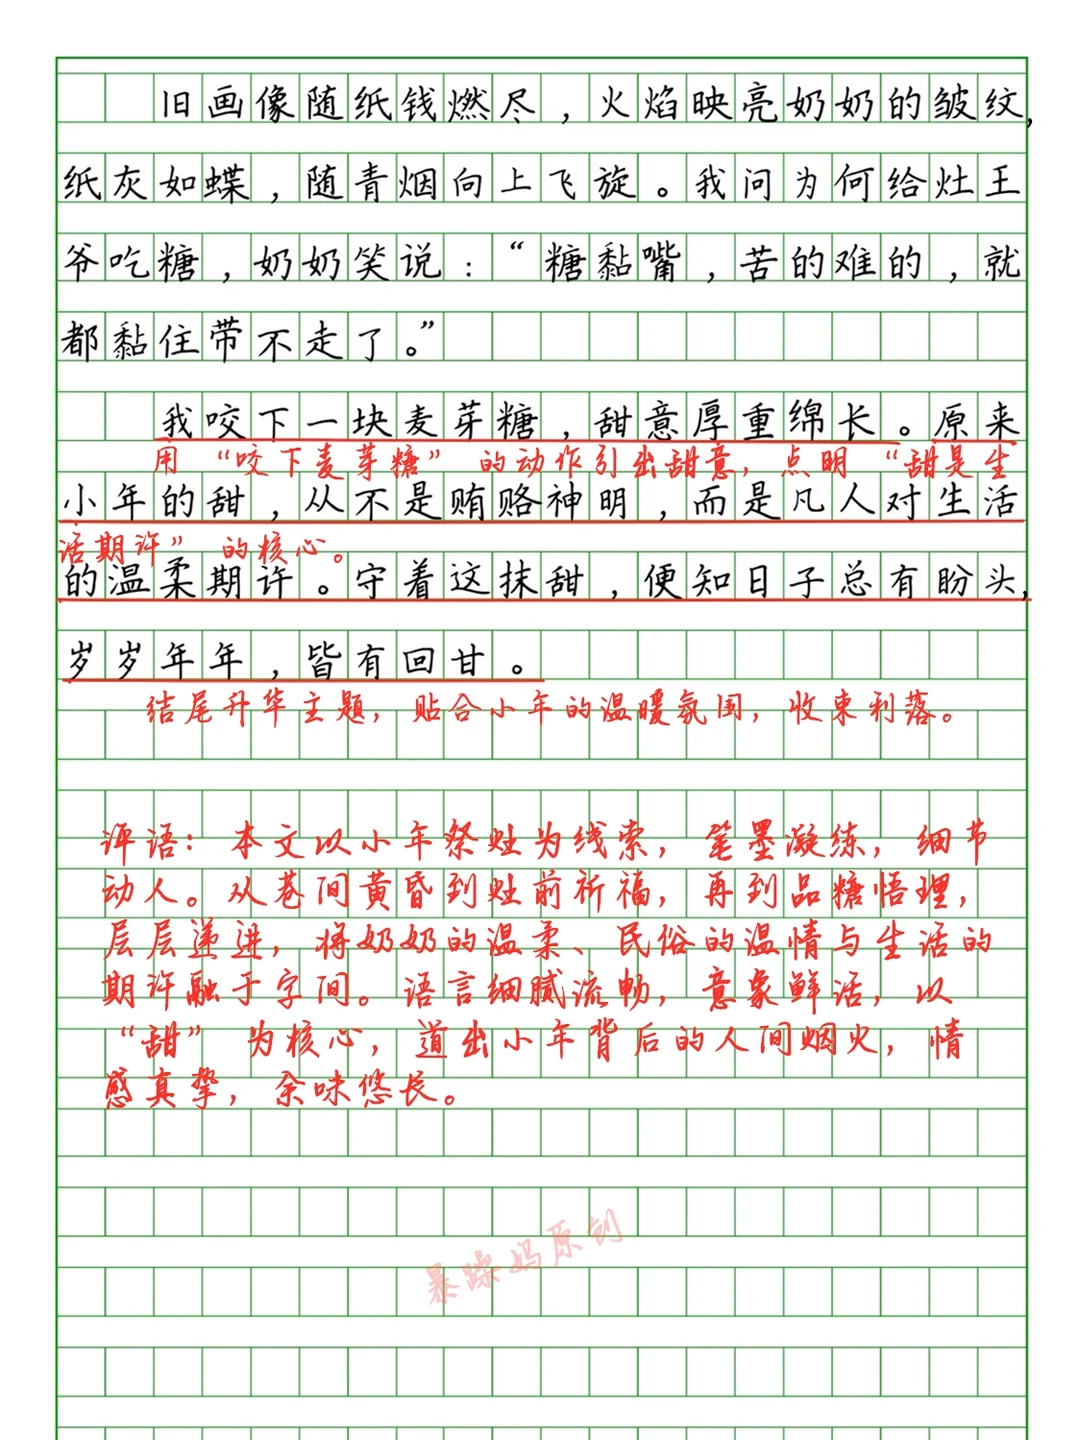 旧画像随纸钱燃尽，火焰映亮奶奶的皱纹，
纸灰如蝶，随青烟向上飞旋。我问为何给灶王
爷吃糖，奶奶笑说：“糖黏嘴，苦的难的，就
都黏住带不走了。”
我咬下一块麦芽糖，甜意厚重绵长。原来
用“咬下麦芽糖”的动作引出甜意，点明“甜是生
小年的甜，从不是贿赂神明，而是凡人对生活
活期许”的核心。
的温柔期许。守着这抹甜，便知日子总有盼头，
岁岁年年，皆有回甘。
结尾升华主题，贴合小年的温暖氛围，收束利落。
评语：本文以小年祭灶为线索，笔墨凝练，细节
动人。从巷间黄昏到灶前祈福，再到品糖悟理，
层层递进，将奶奶的温柔、民俗的温情与生活的
期许融于字间。语言细腻流畅，意象鲜活，以
“甜”为核心，道出小年背后的人间烟火，情
感真挚，余味悠长。
暴躁妈原创